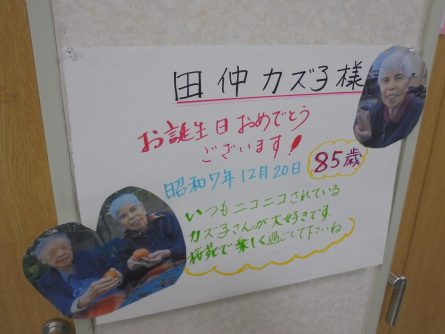 田仲カズ子様
お誕生日おめでとう
ございます!
昭和7年12月20日
85歳
いつもニコニコされている
カズ子さんが大好きです。
桜苑で楽しく過ごして下さいね